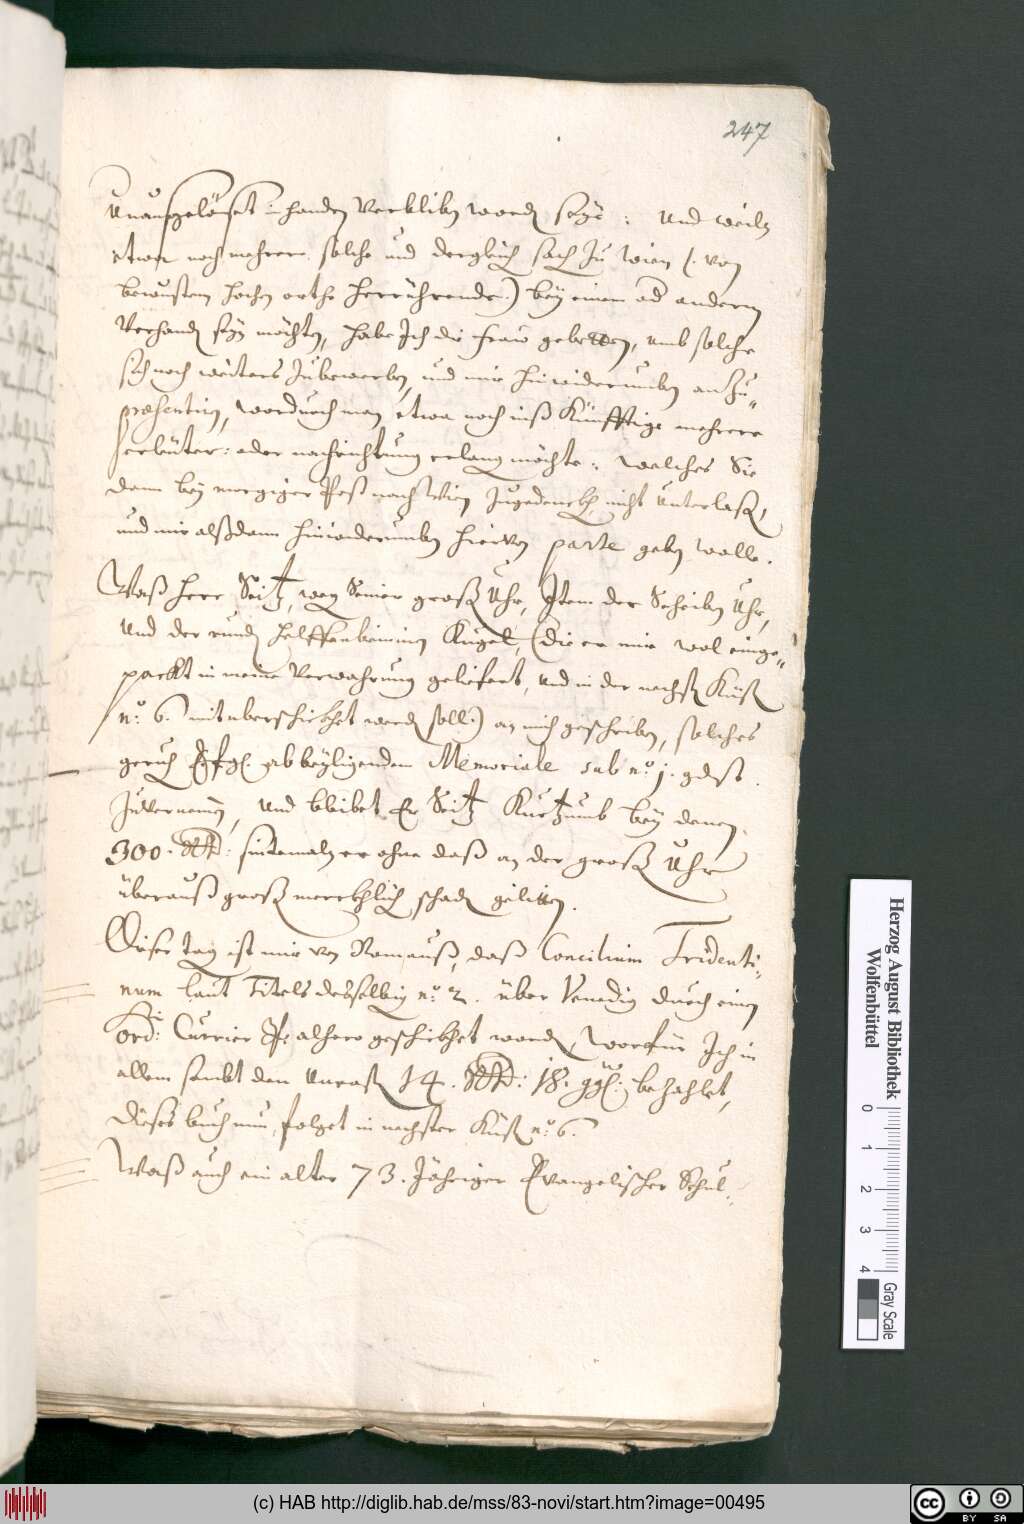 247
Unausgelöset in handen verbliben worden seye: Und weiln
etwan noch mehrere solche und dergleich sach zu Wien (: von
bewustem hochen orthe herrührende:) bey einem od andern
Verhand seyn möchten, habe Ich die fraw gebetten, umb solche
sich noch weiters zubewerben, und mir hinwiderumben an zu„
præsentirn, wordurch man etwa noch inß Künfftige mehrere
erleüter: oder nachrichtung erlang möchte: welches Sie
dann bey morgiger Post nach Wien zugedenckh nicht Unterlaß,
und mir alßdann hinwiderumben hiervon parte geben wolle.
Waß Herr Seitz, weg Seiner groß Uhr, Item der Scheiben Uhr,
Und der rund helffenbeininen Kugel, (die er mir wol einge„
packt in meine Verwahrung geliefert, und in der nechst Küst
nº. 6. mit uberschickhet werd soll:) an mich geschriben, solches
geruh Efgl. ab beyligendem Memoriale sub nº. j. gdst.
zuvernemen, Und bleibet Er Seitz Kurtzumb bey denen
300. Rthl: sintemaln er ohne daß an der groß Uhr
überauß groß merckhlich schad gelitten.
Diser tag ist mir von Rom auß, daß Concilium Tridenti„
num laut Titels desselbig nº. 2. über Venedig durch einen
ord: Currier Pr alhero geschickhet worden, worfür Ich in
allem sambt den Uncost 14. Rthl: 18. ggl: bezahlet,
Dieses buch nun folget in nechster Küst nº. 6.
Waß auch ein alter 73. Jähriger Evangelischer Schul„
Herzog August Bibliothek
Wolfenbüttel
0 1 2 3 4
Gray Scale
(c) HAB http://diglib.hab.de/mss/83-novi/start.htm?image=00495
cc BY SA